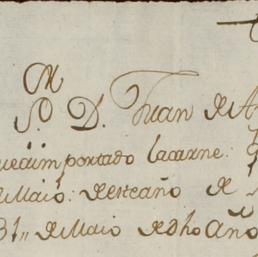 M
S.r D. Juan de A
ueaimportado lacarne
de Maio: deesteaño de
31,, de Maio de dho Año